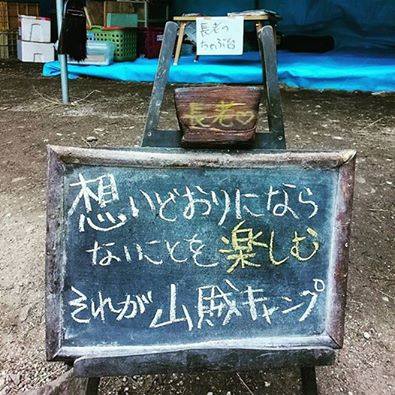 長老の
ちゃぶ台
長老♡
想いどおりになら
ないことを楽しむ
それが山賊キャンプ